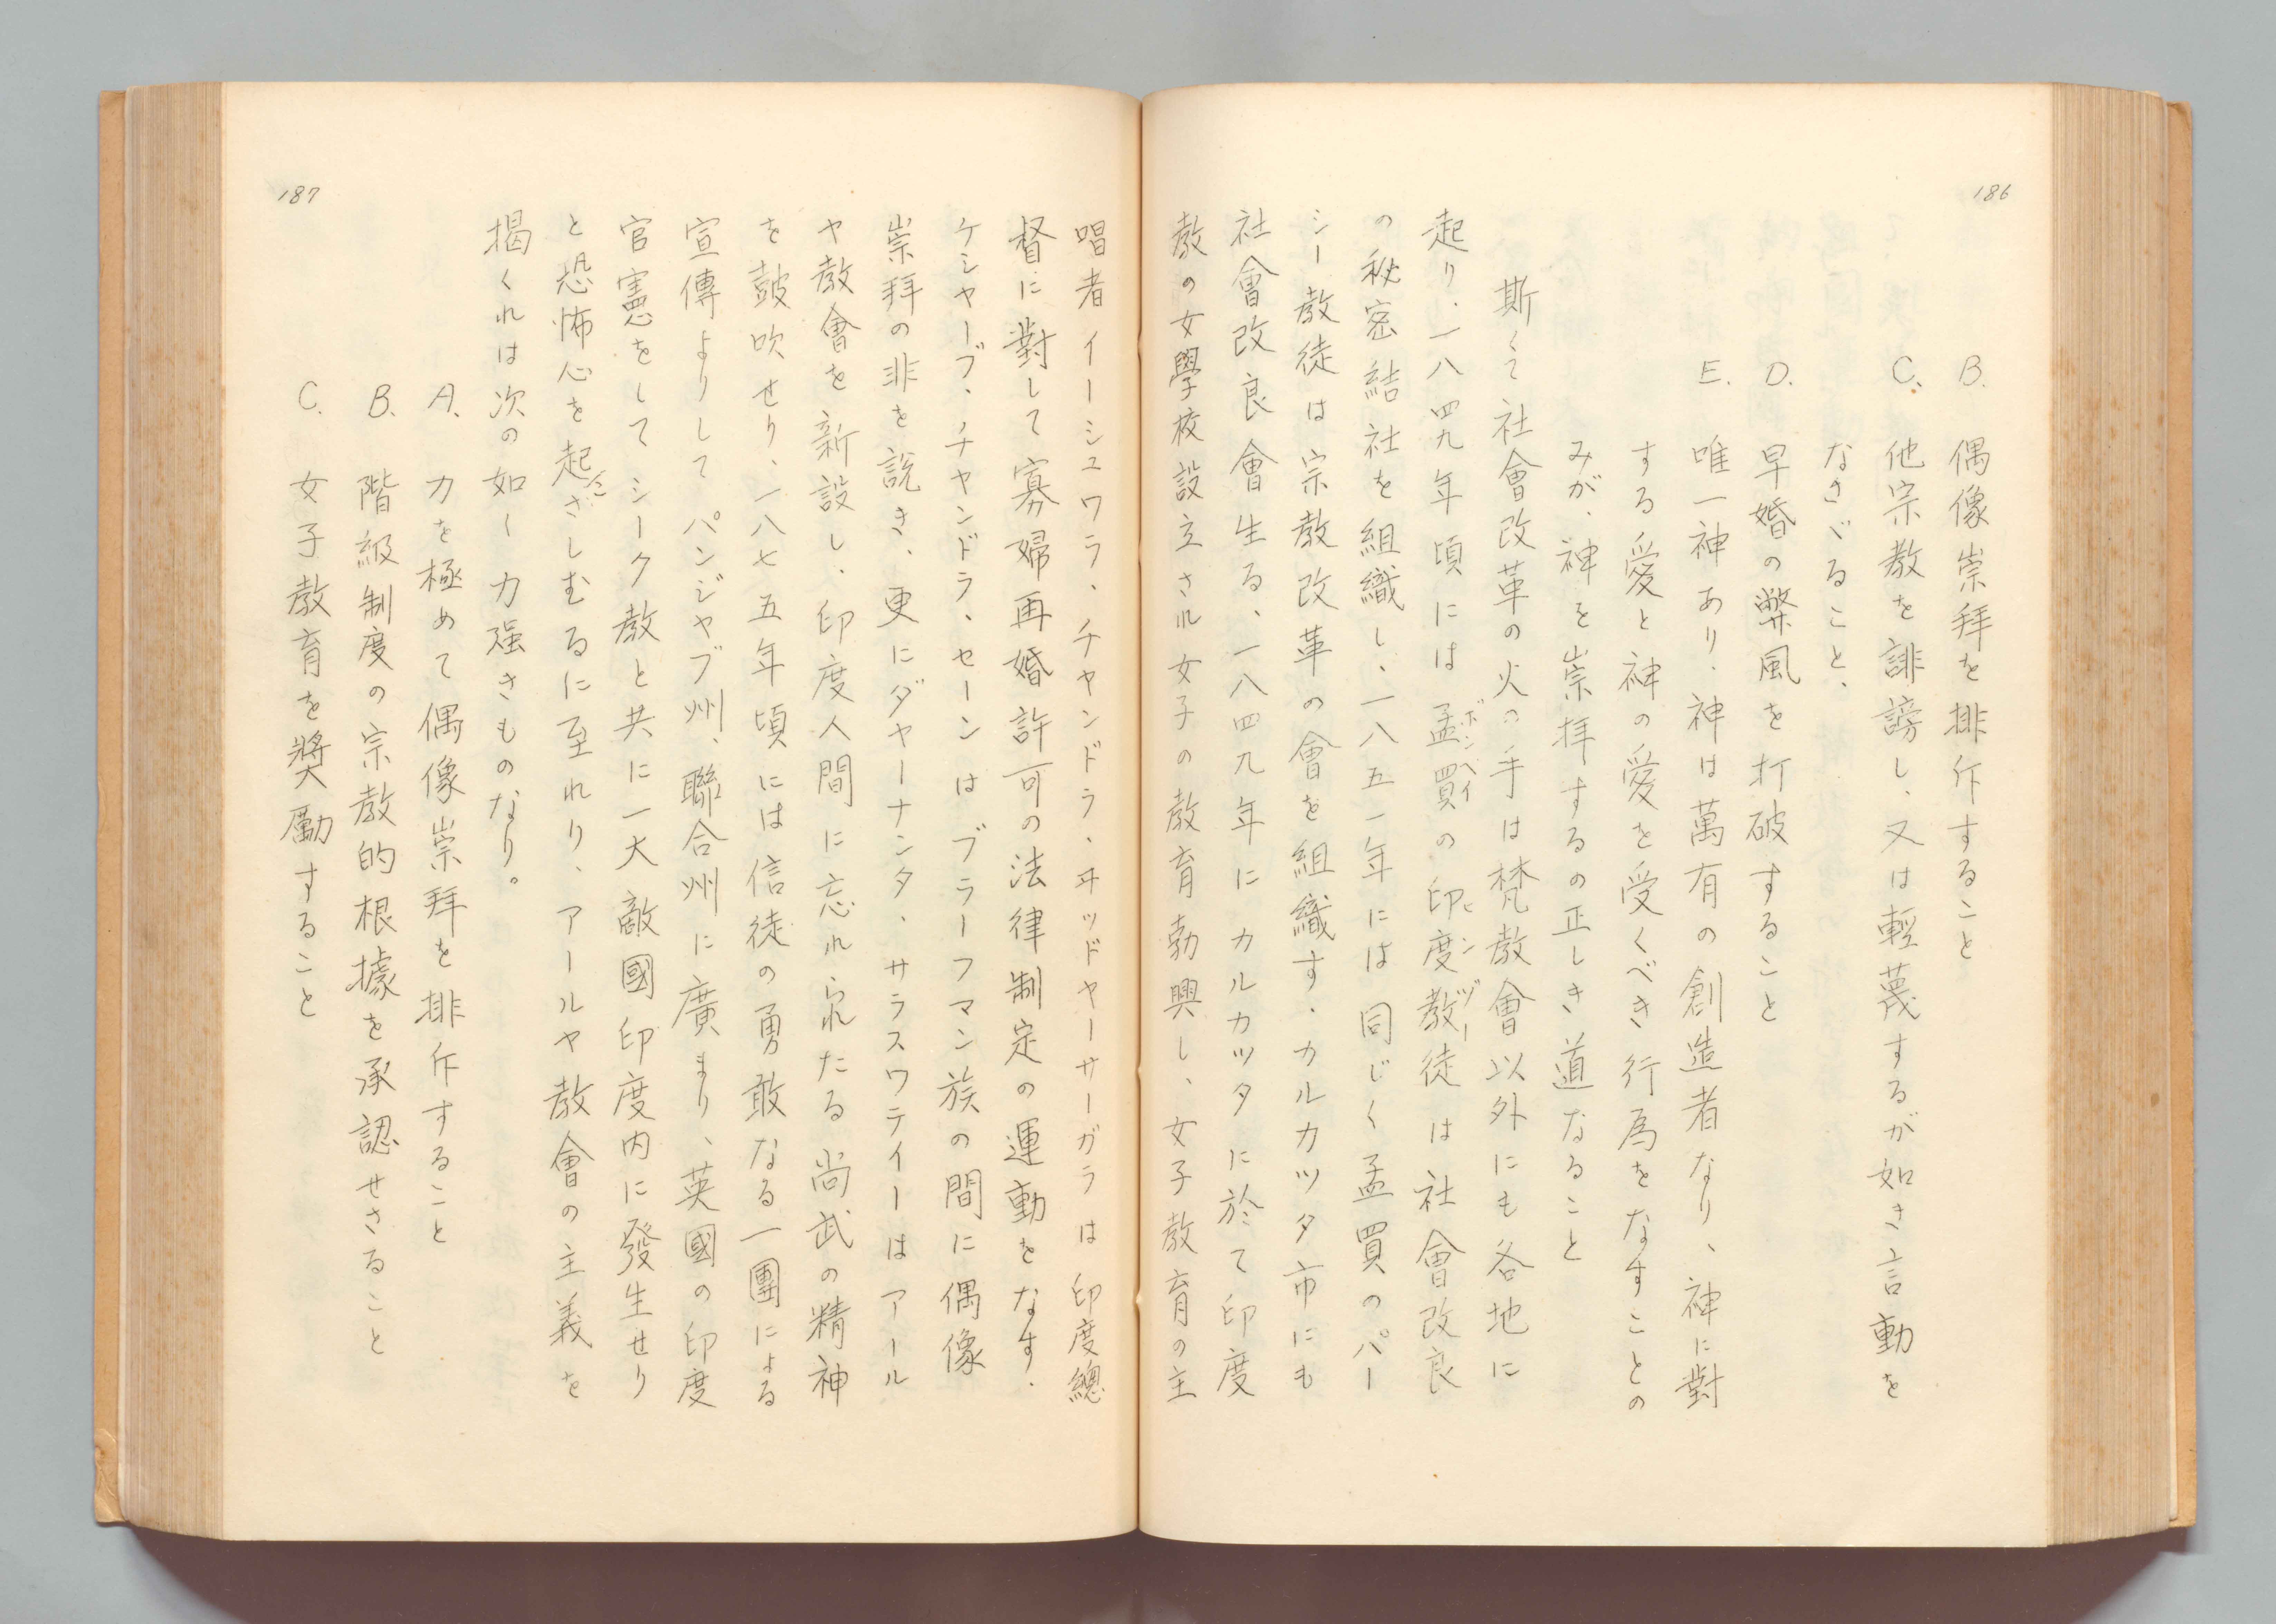 186
B. 偶像崇拜を排斥すること
C. 他宗教を誹謗し、又は輕蔑するが如き言動を
なさゞること、
D. 早婚の弊風を打破すること
E. 唯一神あり、神は萬有の創造者なり、神に對
する愛と神の愛を受くべき行為をなすことの
みが、神を崇拝するの正しき道なること
斯くて社會改革の火の手は梵教會以外にも各地に
起り、一八四九年頃には孟買の印度教徒は社會改良
ボンベイ ヒンヅー
の秘密結社を組織し、一八五一年には同じく孟買のパー
シー教徒は宗教改革の會を組織す、カルカツタ市にも
社會改良會生る、一八四九年にカルカツタに於て印度
教の女學校設立され女子の教育勃興し、女子教育の主
唱者イーシユワラ、チヤンドラ、ヰツドヤーサーガラは印度總
督に對して寡婦再婚許可の法律制定の運動をなす、
ケシヤーブ、チヤンドラ、セーンはブラーフマン族の間に偶像
崇拜の非を説き、更にダヤーナンタ、サラスワテイーはアール
ヤ教會を新設し、印度人間に忘れられたる尚武の精神
を鼓吹せり、一八七五年頃には信徒の勇敢なる一團による
宣傳よりしてパンジヤブ州、聯合州に廣まり、英國の印度
官憲をしてシーク教と共に一大敵國印度内に發生せり
と恐怖心を起こさしむるに至れり、アールヤ教會の主義を
揭くれは次の如く力强きものなり。
A. 力を極めて偶像崇拜を排斥すること
B. 階級制度の宗教的根據を承認せさること
C. 女子教育を奬勵すること
187